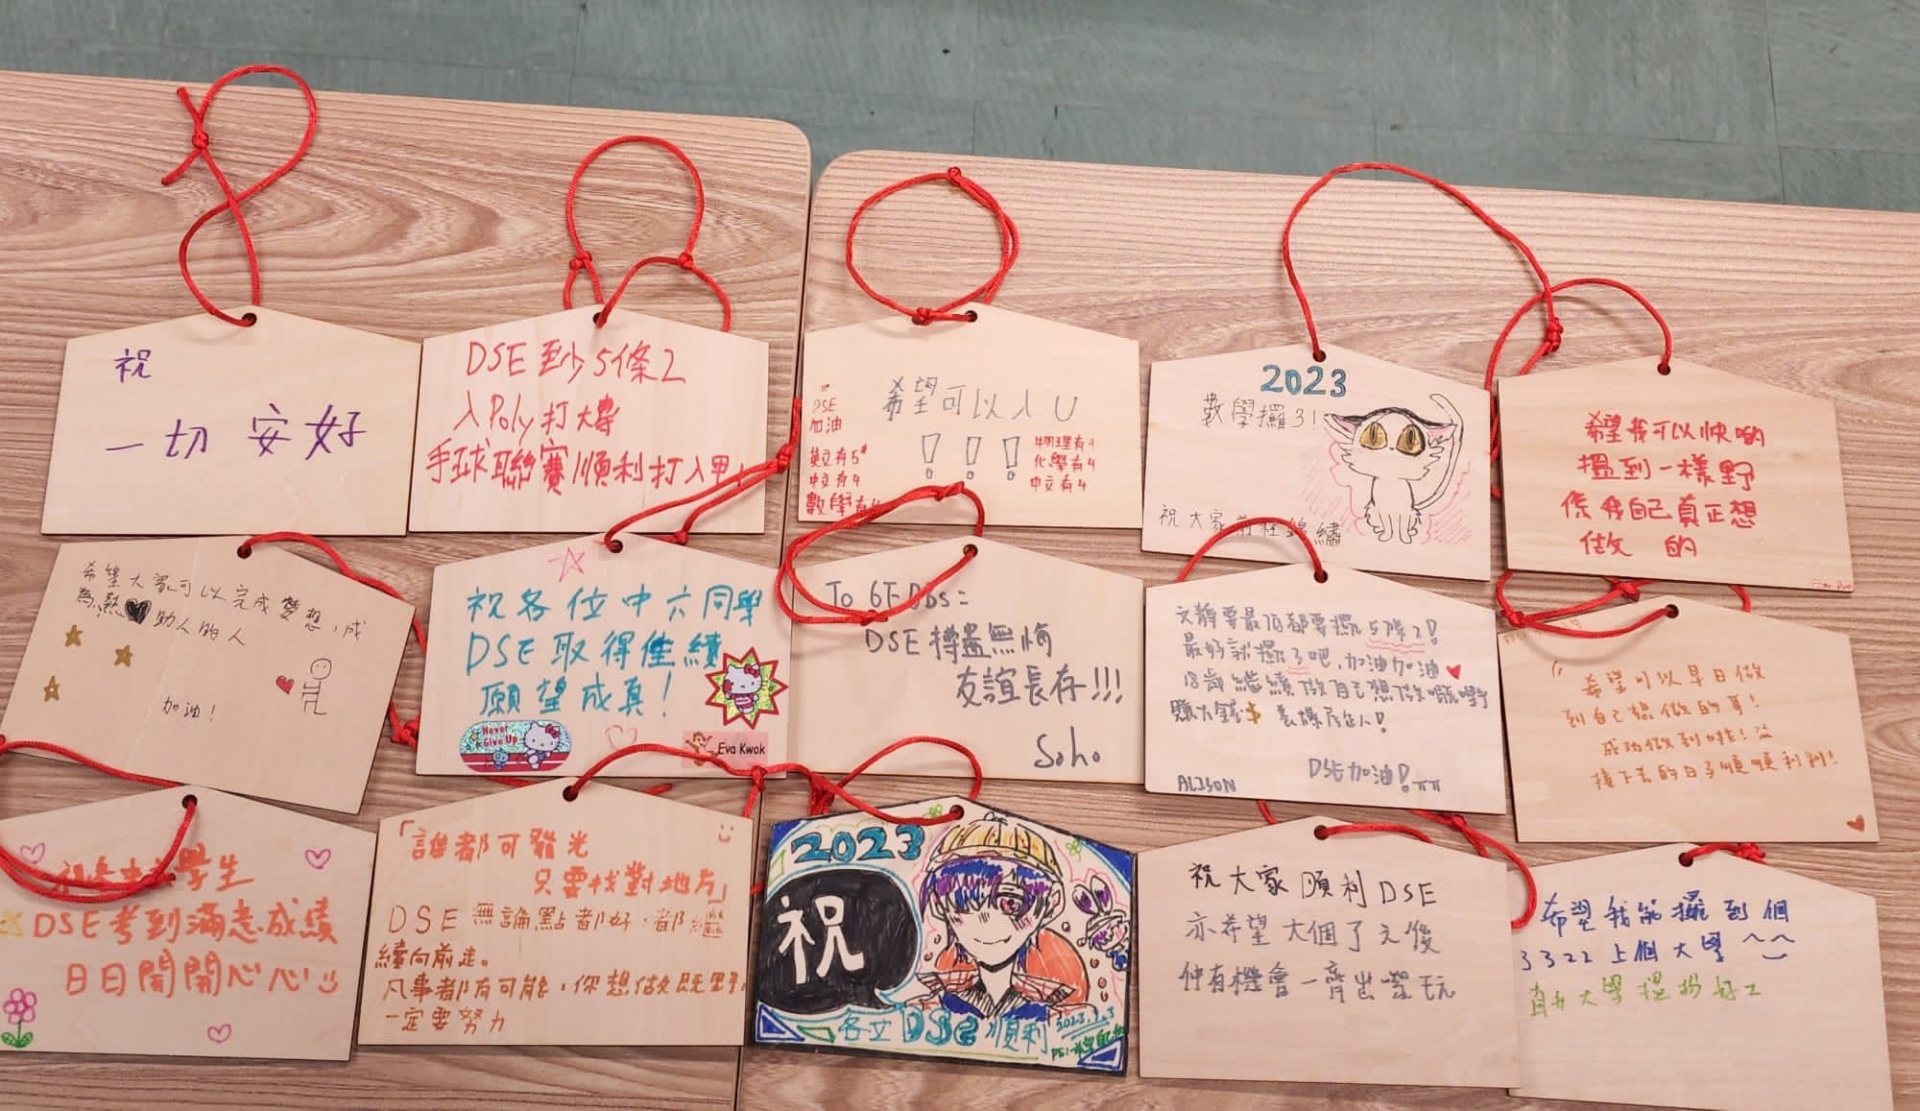 祝
一切 安好
DSE 至少5條2
入Poly打大專
手球聯賽順利打入甲!
DSE
加油
希望可以入U
!!!
英文有5*
中文有4
數學有4
物理有4
化學有4
中文有4
2023
數學攞3!
祝大家前程錦繡
希望我可以快啲
搵到一樣野
係我自己真正想
做 的
希望大家可以完成夢想,成
為熱♥助人的人
加油!
祝各位中六同學
DSE取得佳績
願望成真!
Never
Give Up
Eva Kwok
To 6F DBs:
DSE搏盡無悔
友誼長存!!!
Soho
文靜要最頂都要攞5條2!
最好就攞3吧,加油加油♥
18歲繼續做自己想做嘅嘢
賺大錢
DSE加油!
ALISON
希望可以早日做
到自己想做的事!
成功做到啦!
接下去的日子順順利利!
學生
DSE考到滿意成績
日日開開心心
「誰都可發光
只要找對地方」
DSE無論點都好,都繼
續向前走。
凡事都有可能,你想做既野,
一定要努力
2023
祝
各位DSE順利
祝大家順利DSE
亦希望大個了之後
仲有機會一齊出嚟玩
希望我能攞到個
3322上個大學^^
大學搵份好工